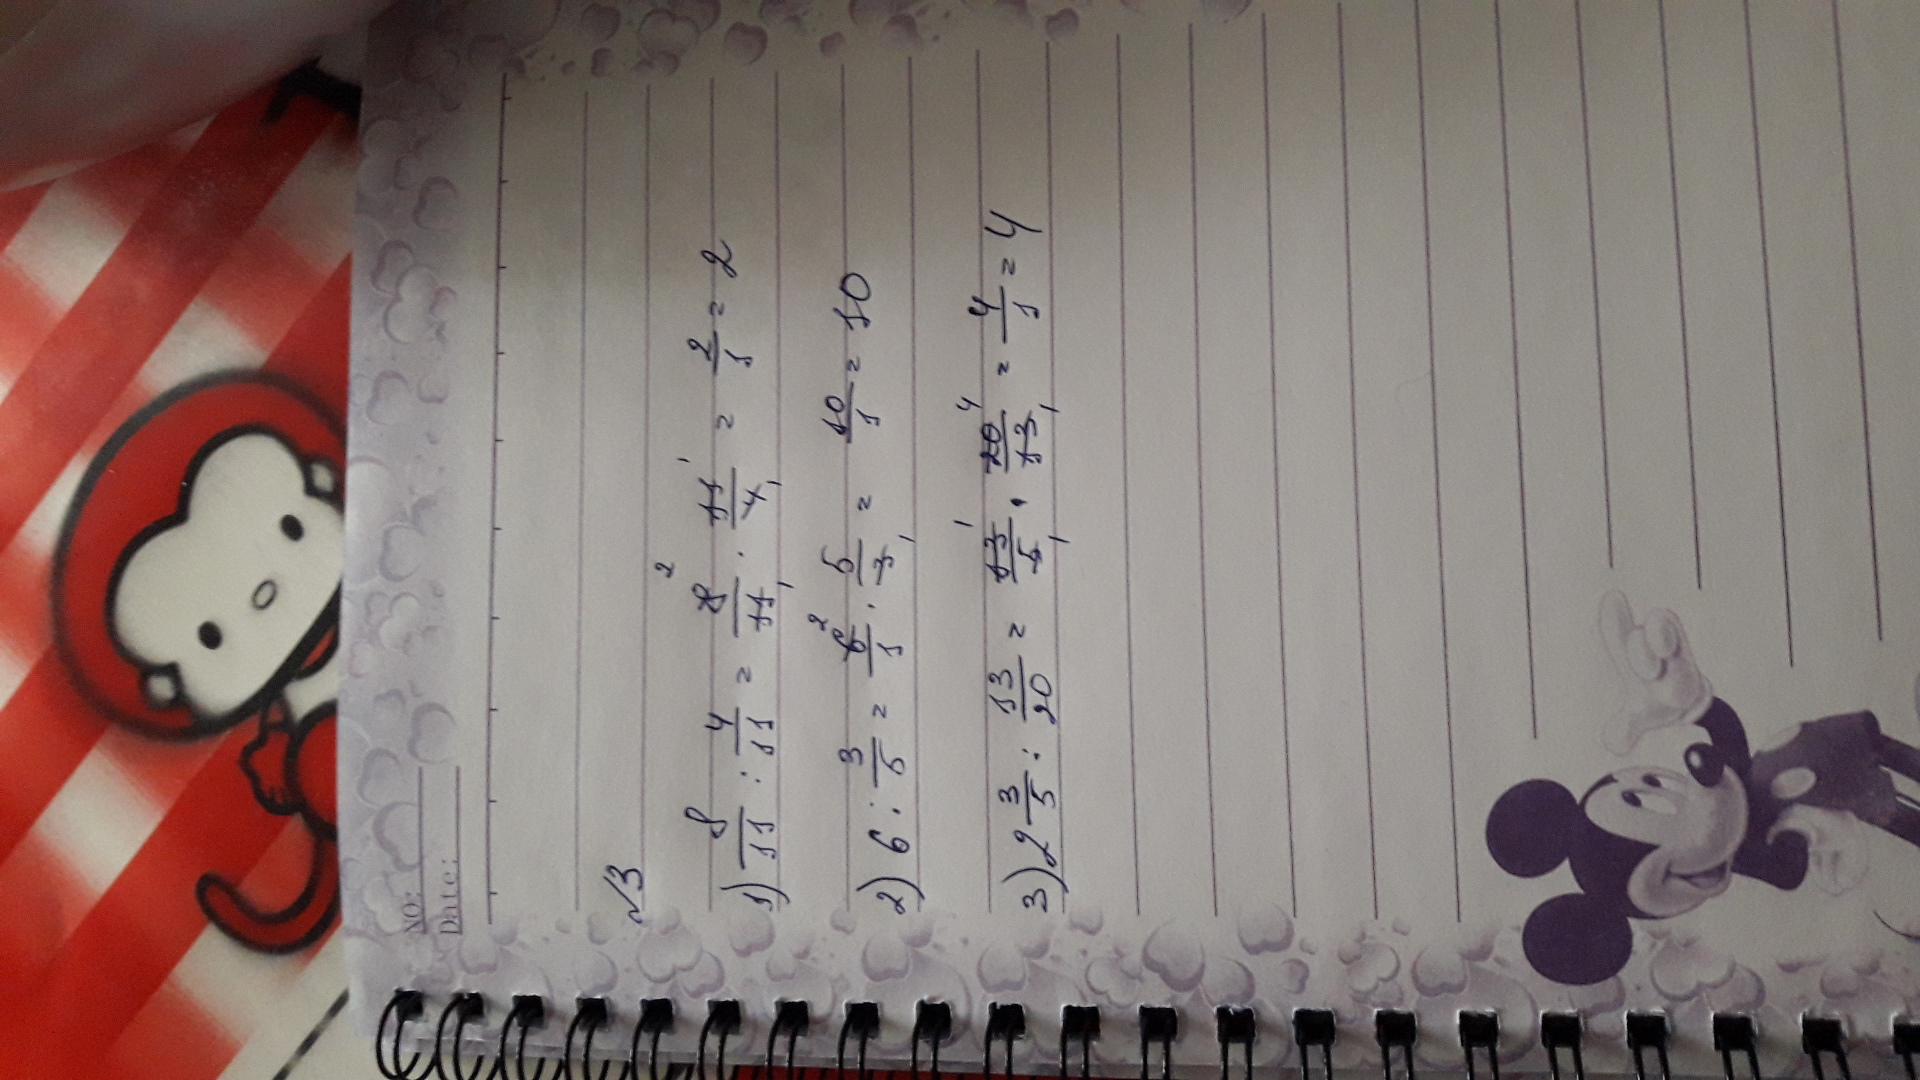 NO:
Date:
√3
1) 8/11 : 4/11 = 8/11 · 11/4 = 2/1 = 2
2) 6 : 3/5 = 6/1 · 5/3 = 10/1 = 10
3) 2 3/5 : 13/20 = 13/5 · 20/13 = 4/1 = 4